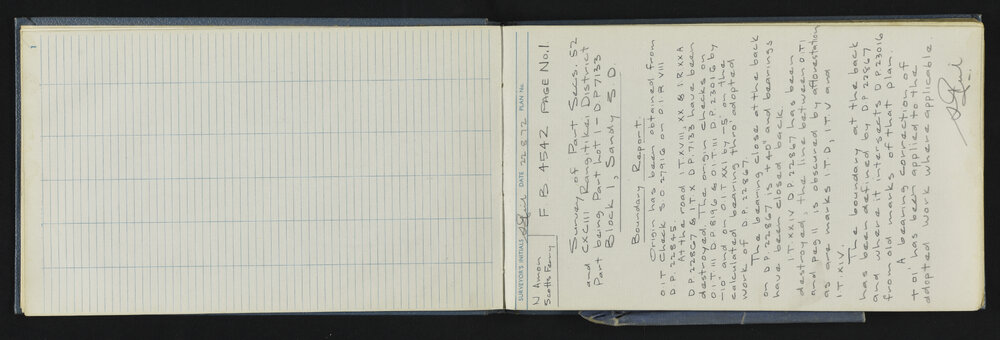 1
SURVEYOR'S INITIALS DATE 22 8 72 PLAN No.
N Amon
Scotts Ferry
F.B 4542 PAGE No.1.
Survey of Part Secs. 52
and CXCIII Rangitikei District
Part being Part Lot 1 - DP 7133
Block 1, Sandy S D.
Boundary Report.
Origin has been obtained from
O.I.T Check S.O 27916 on O.I R VIII
D.P. 22845.
At the road I T XVIII, XX & I R XXA
D P 22867 & I T X D.P. 7133 have been
destroyed. The origin checks on
O.I.T III D.P. 8196 & O I T III D.P. 23016 by
-10" and on O.I.T XXI by -5" on the
calculated bearing thro' adopted
work of D.P. 22867.
The bearing close at the back
on D.P. 22867 is +40" and bearings
have been closed back.
I T. XXIV D.P. 22867 has been
destroyed, the line between O.T I
and peg II is obscured by afforestation
as are marks I T D, I T. V and
I T. XIV.
The boundary at the back
has been defined by D P. 22867
and where it intersects D.P. 23016
from old marks of that plan.
A bearing correction of
+01' has been applied to the
adopted work where applicable.